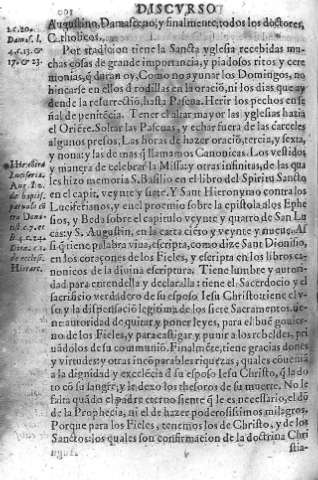 DISCVRSO
Augustino, Damasceno, y finalmente, todos los doctores,
Catholicos.
Por tradicion tiene la Sancta yglesia recebidas mu-
chas cosas de grande importancia, y piadosos ritos y cere
monias, q̃ duran oy. Como no ayunar los Domingos, no
hincarse en ellos d rodillas en la oració, ni los dias que ay
dende la resurrectió, hasta Pascua. Herir los pechos en se
ñal de penitécia. Tener el altar mayor las yglesias hazia
el Oriéte. Soltar las Pascuas, y echar fuera de las carceles
algunos presos. Las horas de hazer oració, tercia, y sexta,
y nona: y las de mas q̃ llamamos Canonicas. Los vestidos
y manera de celebrar la Missa: y otras infinitas, de las qua
les hizo memoria S. Basilio en el libro del Spiritu Sancto
en el capit. veynte y siete. Y Sant Hieronymo contra los
Luciferianos, y en el proemio sobre la epistola a los Ephe
sios, y Beda sobre el capitulo veynte y quatro de San Lu
cas: y S. Augustin, en la carta ciéto y veynte y nueue. As
si q̃ tiene palabra viua, escripta, como dize Sant Dionisio,
en los coraçones de los Fieles, y escripta en los libros ca-
nonicos de la diuina escriptura. Tiene lumbre y autori-
dad para entendella y declaralla: tiene el Sacerdocio y el
sacrificio verdadero de su esposo Iesu Christo: tiene el v-
so, y la dispensació legitima de los siete Sacramentos. tie-
ne autoridad de quitar y poner leyes, para el bué gouier-
no de los Fieles, y para castigar y punir a los rebeldes, pri
uádolos de su comunió. Finalméte, tiene gracias dones
y virtudes: y otras incomparables riquezas, quales cóuenia
a la dignidad y excelécia de su esposo Iesu Christo, q̃ la do
tó có su sangre, y le dexo los thesoros de su muerte. No le
falta quádo el padre eterno siente q̃ le es necessario, el dó
de la Prophecia, ni el de hazer poderosissimos milagros.
Porque para los Fieles, tenemos los de Christo, y de los
Sanctos: los quales son confirmacion de la doctrina Chri
stia-
2.c.20.
Damas. l.
4.c.13. &
17. & 23.
Hier.
Luciferia.
Aug. l.
de baptis.
paruulo. cō
tra Dona